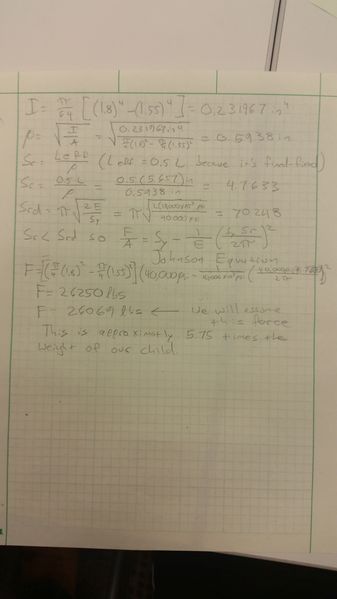 I = π/64 [(1.8)⁴ - (1.55)⁴] = 0.231967 in⁴
ρ = √(I/A) = √(0.231967in⁴ / (π/4(1.8)² - π/4(1.55)²)) = 0.5938 in
Sr = Leff/ρ (Leff = 0.5L because it's fixed-fixed)
Sr = 0.5L/ρ = 0.5(5.657)in / 0.5938 in = 4.7633
Srd = π√(2E/Sy) = 70.248
Sr < Srd so F/A = Sy - 1/E (Sy Sr / 2π)²
Johnson Equation
F = [(π/4(1.8)² - π/4(1.55)²] (40,000psi -
F = 26250 lbs
F = 26069 lbs ← we will assume
this force
This is approximatly 5.75 times the
weight of our child.